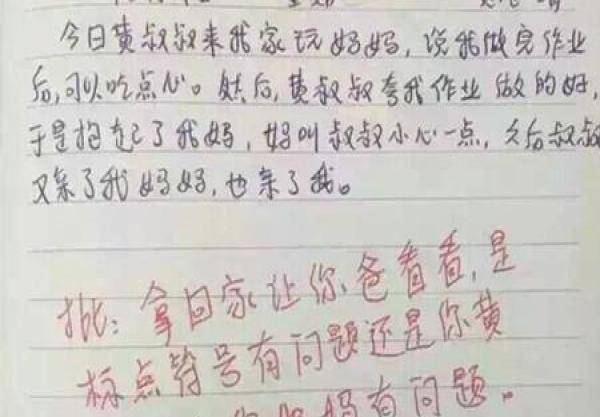 今日黄叔叔来我家玩妈妈，说我做完作业
后，可以吃点心。然后，黄叔叔夸我作业做的好，
于是抱起了我妈，妈叫叔叔小心一点，久后叔叔
又亲了我妈妈，也亲了我。
批：拿回家让你爸看看，是
标点符号有问题还是你黄
妈有问题。